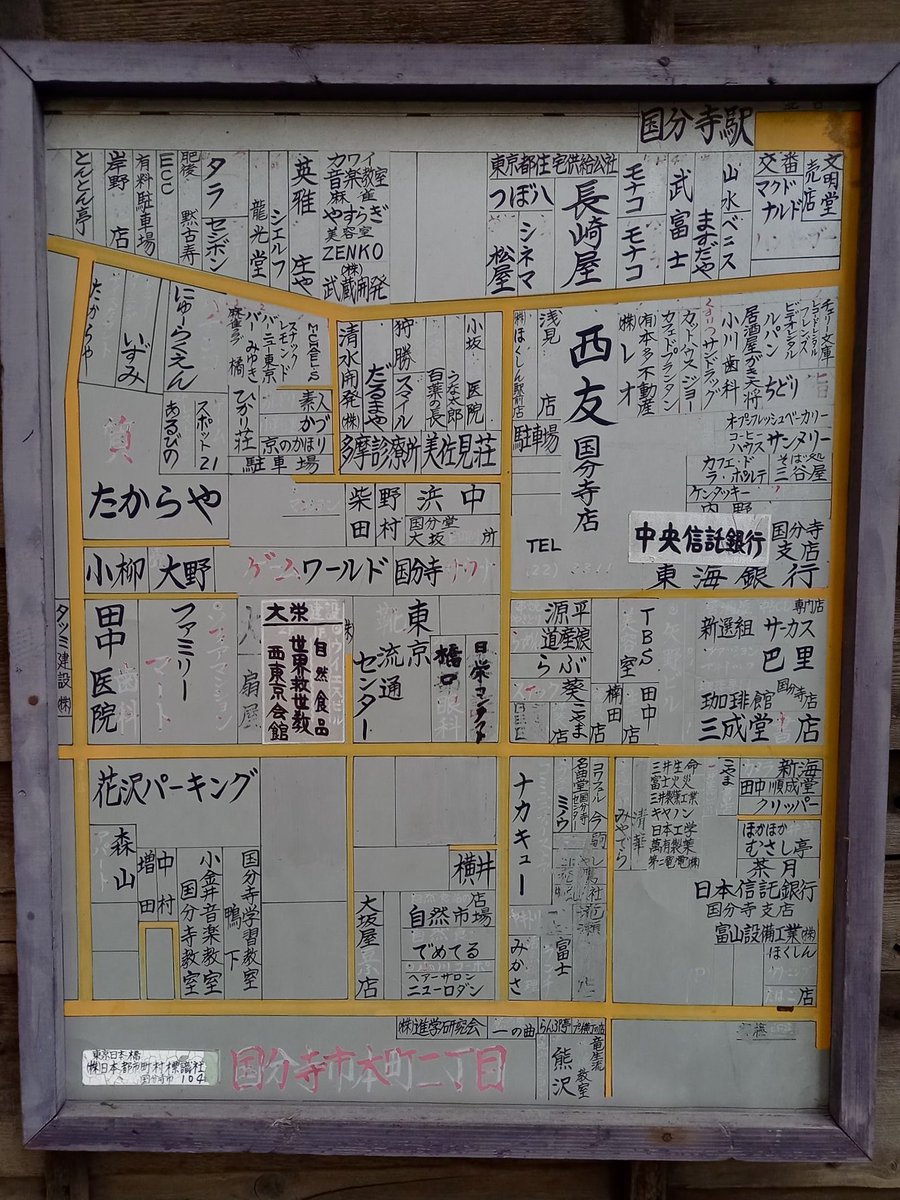 国分寺駅
とんとん亭
岸野店
有料駐車場
ECC
肥後
黙古寿
タラ
セシボン
龍光堂
シエルフ
英雅
庄や
カワイ
音楽教室
麻雀
やすらぎ
美容室
ZENKO
(株)
武蔵開発
東京都住宅供給公社
つぼ八
シネマ
松屋
長崎屋
モナコ
モナコ
武富士
山水
ベニス
ますだや
交番
マクド
ナルド
売店
文明堂
たからや
いずみ
にゅーらくえん
あるびの
スポット21
質
たからや
バーみゆき
橘
ひかり荘
素人
かづ
京のかほり
駐車場
清水開発(株)
だるまや
狩勝
スマイル
百薬の長
うな太郎
小坂医院
多摩診療所
美佐見荘
柴田
野村
浜中
国分堂
大坂
所
浅見店
駐車場
西友
国分寺店
TEL
(株)レオ
(有)本多不動産
カフェドプランタン
カットハウスジョー
くすり
サンドラッグ
小川歯科
居酒屋がき大将
ルパン
ちどり
チェリー文庫
オプシフレッシュベーカリー
コーヒーハウス
サンメリー
カフェ・ド・ラ・ポルテ
そば処
三谷屋
ケンタッキー
内野
中央信託銀行
国分寺
支店
東海銀行
小柳
大野
ゲームワールド国分寺
タツミ建設(株)
田中医院
歯科
ファミリー
マート
扇屋
大栄
自然食品
世界救世教
西東京会館
(株)
東京
流通
センター
橋口
日栄コンタクト
眼科
源平
道産浪
らぶ
葵
こやま店
楠田
TBS
田中店
専門店
新選組
サーカス
巴里
珈琲館
国分寺店
三成堂
店
花沢パーキング
森山
増田
中村
小金井音楽教室
国分寺教室
国分寺学習教室
鴨下
大坂屋
店
横井
店
自然市場
でめてる
ヘアーサロン
ニューロダン
ナカキュー
みかさ
名曲堂
国分寺
センター
ミノウ
コワフル
今駒
富士
みやでら
清華
三井生命
富士火災
三井製薬工業
キヤノン
日本工学
萬有製薬
第二電電(株)
こやま
新海
田中順成堂
クリッパー
ほかほか
むさし亭
茶月
日本信託銀行
国分寺支店
富山設備工業(株)
ほくしん
店
(株)進学研究会
一の曲
熊沢
竜生流
教室
東京日本橋
(株)日本都市町村標識社
104
国分寺市本町二丁目